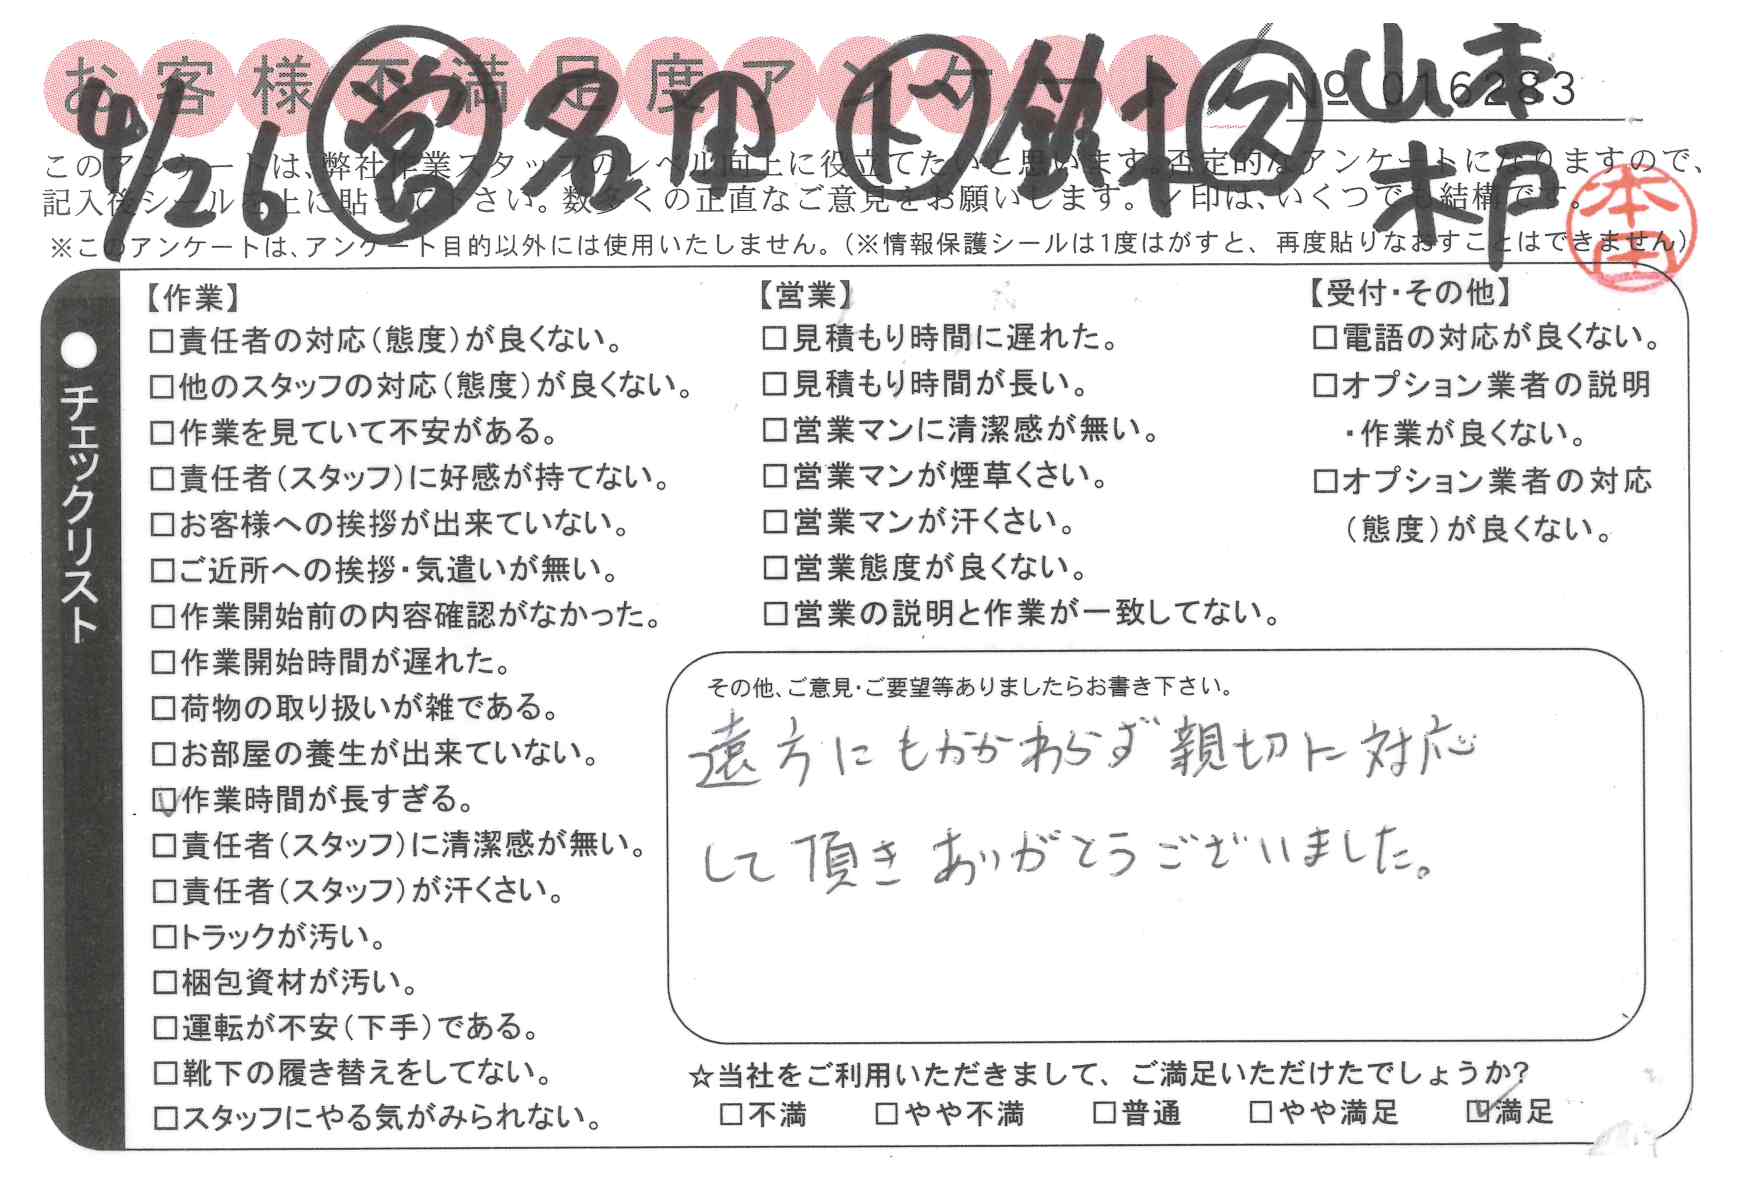 お客様不満足度アンケート
№ 016283
4/26 営 名田 ド 鈴木 ス 山本
木戸
このアンケートは、弊社作業スタッフのレベル向上に役立てたいと思います。否定的なアンケートになりますので、
記入後シールを上に貼って下さい。数多くの正直なご意見をお願いします。✓印は、いくつでも結構です。
本田
※このアンケートは、アンケート目的以外には使用いたしません。(※情報保護シールは1度はがすと、再度貼りなおすことはできません)
●チェックリスト
【作業】
□責任者の対応(態度)が良くない。
□他のスタッフの対応(態度)が良くない。
□作業を見ていて不安がある。
□責任者(スタッフ)に好感が持てない。
□お客様への挨拶が出来ていない。
□ご近所への挨拶・気遣いが無い。
□作業開始前の内容確認がなかった。
□作業開始時間が遅れた。
□荷物の取り扱いが雑である。
□お部屋の養生が出来ていない。
☑作業時間が長すぎる。
□責任者(スタッフ)に清潔感が無い。
□責任者(スタッフ)が汗くさい。
□トラックが汚い。
□梱包資材が汚い。
□運転が不安(下手)である。
□靴下の履き替えをしてない。
□スタッフにやる気がみられない。
【営業】
□見積もり時間に遅れた。
□見積もり時間が長い。
□営業マンに清潔感が無い。
□営業マンが煙草くさい。
□営業マンが汗くさい。
□営業態度が良くない。
□営業の説明と作業が一致してない。
【受付・その他】
□電語の対応が良くない。
□オプション業者の説明
・作業が良くない。
□オプション業者の対応
(態度)が良くない。
その他、ご意見・ご要望等ありましたらお書き下さい。
遠方にもかかわらず親切に対応
して頂きありがとうございました。
☆当社をご利用いただきまして、ご満足いただけたでしょうか?
□不満 □やや不満 □普通 □やや満足 ☑満足